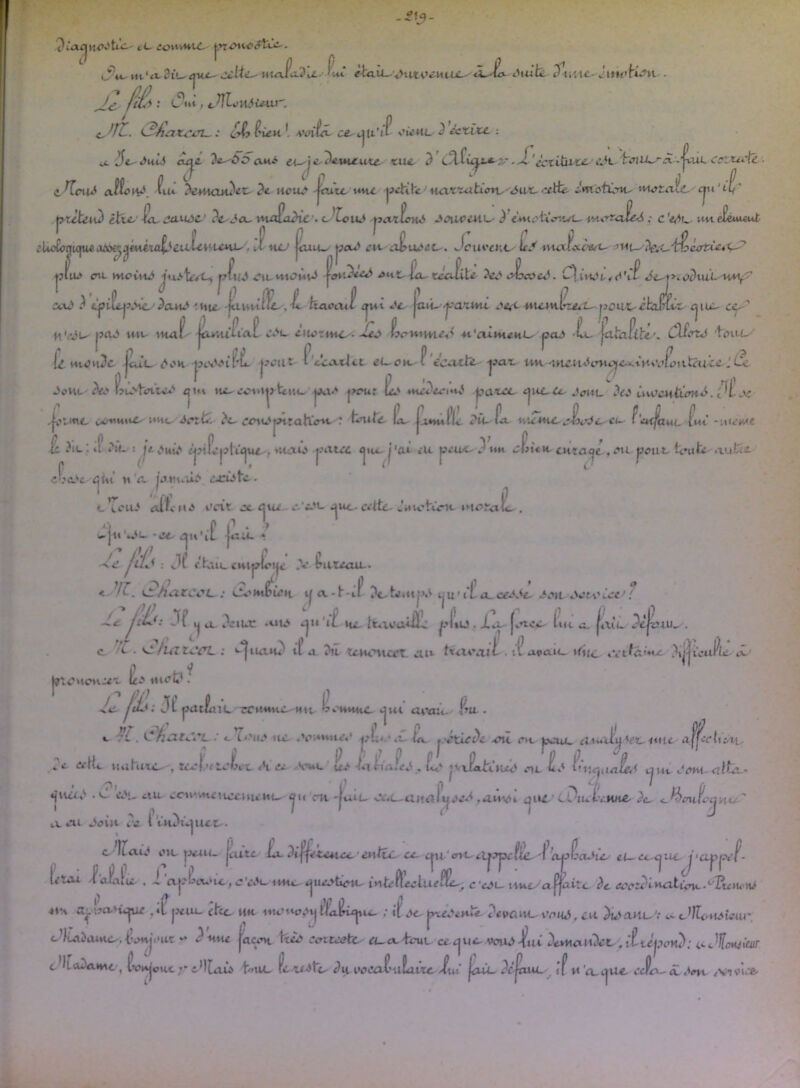 - 219 -
Diagnostic et comme pronostic.
On m'a dit que cette maladie lui était survenue à la suite d'une émotion.
Le fils : Oui, Monsieur.
M. Charcot : Eh bien ! voilà ce qu'il vient d'écrire :
« Je suis âgé de 55 ans et je demeure rue d'Aligre ». L'écriture est tout-à-fait correcte.
Nous allons lui demander de nous faire une petite narration sur cette émotion morale qu'il
prétend être la cause de sa maladie. Nous parlons souvent d'émotions morales ; c'est un élément
étiologique assez généralement, il ne faut pas en abuser. Souvent les malades ont des théories
plus ou moins justes, plus ou moins fondées sur la réalité des choses. Ainsi, s'il se produit un
cas d'épilepsie dans une famille, le travail qui se fait parmi ses membres pour établir que ce
n'est pas un mal familial est énorme. Les hommes n'aiment pas la fatalité. Alors tout
le monde fait son possible pour l'écarter et on l'écarte par un mensonge involontaire. Ce
sont des histoires qui ne comptent pas pour les médecins parce que ce sont des inventions. Il se
forme comme une sorte de conspiration : toute la famille dit la même chose et l'enfant lui-même
le dit ; il dit : je suis épileptique, mais parce que j'ai eu peur d'un chien enragé, ou pour toute autre
chose qui n'a jamais existé.
Nous allons voir ce que c'est que cette émotion morale.
Qu'est-ce qu'il fait ?
Le fils : Il était employé de bureau.
M. Charcot : Combien y a-t-il de temps qu'il a cessé son service ?
Le fils : Il y a deux ans qu'il ne travaille plus. La force lui a fait défaut.
M. Charcot : Quand il a dû renoncer au travail, il avait une certaine difficulté à
prononcer les mots ?
Le fils : Il parlait comme un homme qui avait bu.
M. Charcot : Nous ne sommes plus à la période où on peut analyser une affection
de cette nature, rechercher si ce sont les labiales, les palatines ou les linguales qui sont atta-
quées. C'est au commencement qu'on fait ces analyses, ainsi que Duchenne de Boulogne
a eu soin de l'indiquer.
Mais on peut faire la différence entre ce qu'on appelle l'aphasie et ce que j'appel-
lerai l'alalie. L'aphasie, c'est une question intellectuelle, c'est une affaire de coordination. Prenons
un aphasique, il peut être un monosyllabique ; il se présente devant vous, en disant : « Monsieur,
Madame, bonjour » d'une façon très correcte et à tout ce que vous lui demandez, il répond : « Monsieur
Madame, bonjour » Mais tout le reste du vocabulaire lui fait défaut, il n'a que cela à son service